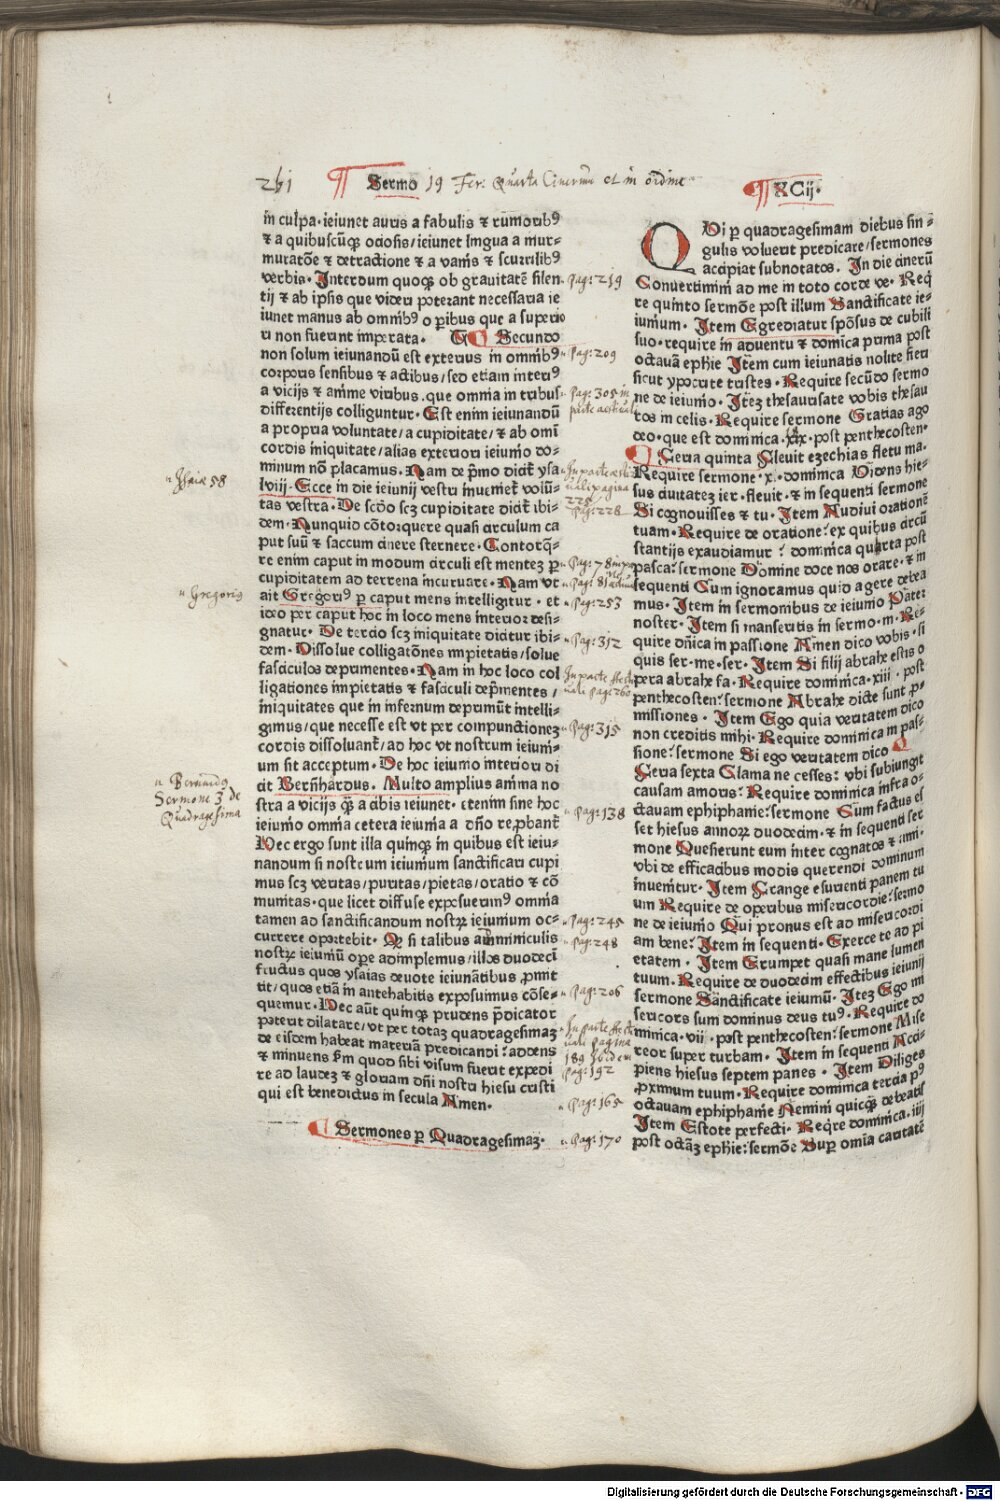 Sermo 19 Fer: Quarta Cinerum et in ordine
XCij.
in culpa·ieiunet auris a fabulis ⁊ rumoribꝰ
⁊ a quibuscũqꝫ ociosis/ieiunet lingua a mur⸗
muratõe ⁊ detractione ⁊ a vanis ⁊ scurrilibꝰ
verbis· Interdum quoqꝫ ob grauitatẽ silen
tij ⁊ ab ipsis que videri poterant necessaria ie
iunet manus ab omnibꝰ o ꝑibus que a superio
ri non fuerint imperata· Secundo
non solum ieiunandũ est exterius in omnibꝰ
corporis sensibus ⁊ actibus/sed etiam interiꝰ
a vicijs ⁊ anime viribus·que omnia in tribus
differentijs colliguntur· Est enim ieiunandũ
a propria voluntate/a cupiditate/⁊ ab omi
cordis iniquitate/alias exteriori ieiunio do⸗
minum nõ placamus· Nam de pⁱmo dicit ysa
lviij· Ecce in die ieiunij vestri inuenietʳ volũ⸗
tas vestra· De scõo scꝫ cupiditate dicitʳ ibi⸗
dem· Nunquid cõtorquere quasi circulum ca
put suũ ⁊ saccum cinere sternere· Contorq̃⸗
re enim caput in modum circuli est mentez ꝑ
cupiditatem ad terrena incuruare· Nam vt
ait Gregoriꝰ ꝑ caput mens intelligitur· et
ideo per caput hoc in loco mens interior desi⸗
gnatur· De tercio scꝫ iniquitate dicitur ibi⸗
dem· Dissolue colligatões impietatis/solue
fasciculos deprimentes· Nam in hoc loco col
ligationes impietatis ⁊ fasciculi depⁱmentes/
iniquitates que in infernum deprimũt intelli⸗
gimus/que necesse est vt per compunctionez
cordis dissoluantʳ/ad hoc vt nostrum ieiuni⸗
um sit acceptum· De hoc ieiunio interiori di
cit Berñhardus· Multo amplius anima no
stra a vicijs q̃ꝫ a cibis ieiunet· etenim sine hoc
ieiunio omnia cetera ieiunia a dño re.ꝓbantʳ
Hec ergo sunt illa quinqꝫ in quibus est ieiu⸗
nandum si nostrum ieiunium sanctificari cupi
mus scꝫ veritas/puritas/pietas/oratio ⁊ cõ
munitas·que licet diffuse exposuerimꝰ omnia
tamen ad sanctificandum nostrꝝ ieiunium oc⸗
currere oportebit· Qꝫ si talibus amminiculis
nostrꝝ ieiuniũ oꝑe adimplemus/illos duodeci
fructus quos ysaias deuote ieiunãtibus ꝓmit
tit/quos etiã in antehabitis exposuimus cõse⸗
quemur· Hec aũt quinqꝫ prudens p̃dicator
poterit dilatare/vt per totaꝫ quadragesimaꝫ
de eisdem habeat materiã predicandi? addens
⁊ minuens s̃m quod sibi visum fuerit expedi
re ad laudeꝫ ⁊ gloriam dñi nostri hiesu cristi
qui est benedictus in secula Amen·
Sermones ꝑ Quadragesimaꝫ·
Jsaie 58
Gregoriꝰ
Bernardꝰ
Sermone 3 de
Quadragesima
Pag: 219
Pag: 209
Pag: 305 in
parte aestiuali
In parte aesti
uali pagina
225
Pag: 228
Pag: 253
Pag: 312
Pag: 315
Pag: 138
Pag: 245
Pag: 248
Pag: 206
pagina
189
Pag: 192
Pag: 165
Pag: 170
QVi ꝑ quadragesimam diebus sin⸗
gulis voluerit predicare/sermones
accipiat subnotatos· In die cinerũ
Conuertimini ad me in toto corde ve· Req̃
re quinto sermõe post illum Sanctificate ie⸗
iunium· Item Egrediatur spõsus de cubili
suo·require in aduentu ⁊ dominica prima post
octauã ephie Item cum ieiunatis nolite fieri
sicut ypocrite tristes· Require secũdo sermo
ne de ieiunio· Iteꝫ thesaurisate vobis thesau
ros in celis· Require sermone Gratias ago
deo·que est dominica·xix·post penthecosten·
Feria quinta Fleuit ezechias fletu ma·
Require sermone·x·dominica Videns hie⸗
sus ciuitateꝫ ier·fleuit·⁊ in sequenti sermone
Si cognouisses ⁊ tu· Item Audiui orationẽ
tuam·Require de oratione?ex quibus circũ
stantijs exaudiamur? dominica quarta post
pasca?sermone Domine doce nos orare·⁊ in
sequenti Cum ignoramus quid agere debea
mus· Item in sermonibus de ieiunio Pater
noster· Item si manseritis in sermo·m·Re⸗
quire dñica in passione Amen dico vobis·si
quis ser·me·ser· Item Si filij abrahe estis o
pera abrahe fa·Require dominica·xiii·post
penthecosten?sermone Abrahe dicte sunt ꝓ⸗
missiones· Item Ego quia veritatem dico
non creditis mihi·Require dominica in pas⸗
sione?sermone Si ego veritatem dico
Feria sexta Clama ne cesses: vbi subiungit
causam amoris? Require dominica infra o⸗
ctauam ephiphanie?sermone Cum factus es
set hiesus annoꝝ duodecim·⁊ in sequenti ser
mone Quesierunt eum inter cognatos ⁊ inni·
vbi de efficacibus modis querendi dominum
inuenitur· Item Frange esurienti panem tu
um Require de operibus misericordie?sermo
ne de ieiunio Qui pronus est ad misericordi
am bene? Item in sequenti·Exerce te ad pi
etatem· Item Erumpet quasi mane lumen
tuum·Require de duodecim effectibus ieiunij
sermone Sanctificate ieiuniũ· Iteꝫ Ego mi
sericors sum dominus deus tuꝰ· Require do
minica·vii·post penthecosten?sermone Mise
reor super turbam· Item in sequenti Acci⸗
piens hiesus septem panes· Item Diliges
ꝓximum tuum·Require dominica tercia pꝰ
octauam ephiphanie Nemini quicq̃ꝫ debeatis
Item Estote perfecti· Req̃re dominica·iiij
post octãꝫ ephie:sermõe Suꝑ omia caritatẽ
Digitalisierung gefördert durch die Deutsche Forschungsgemeinschaft - DFG